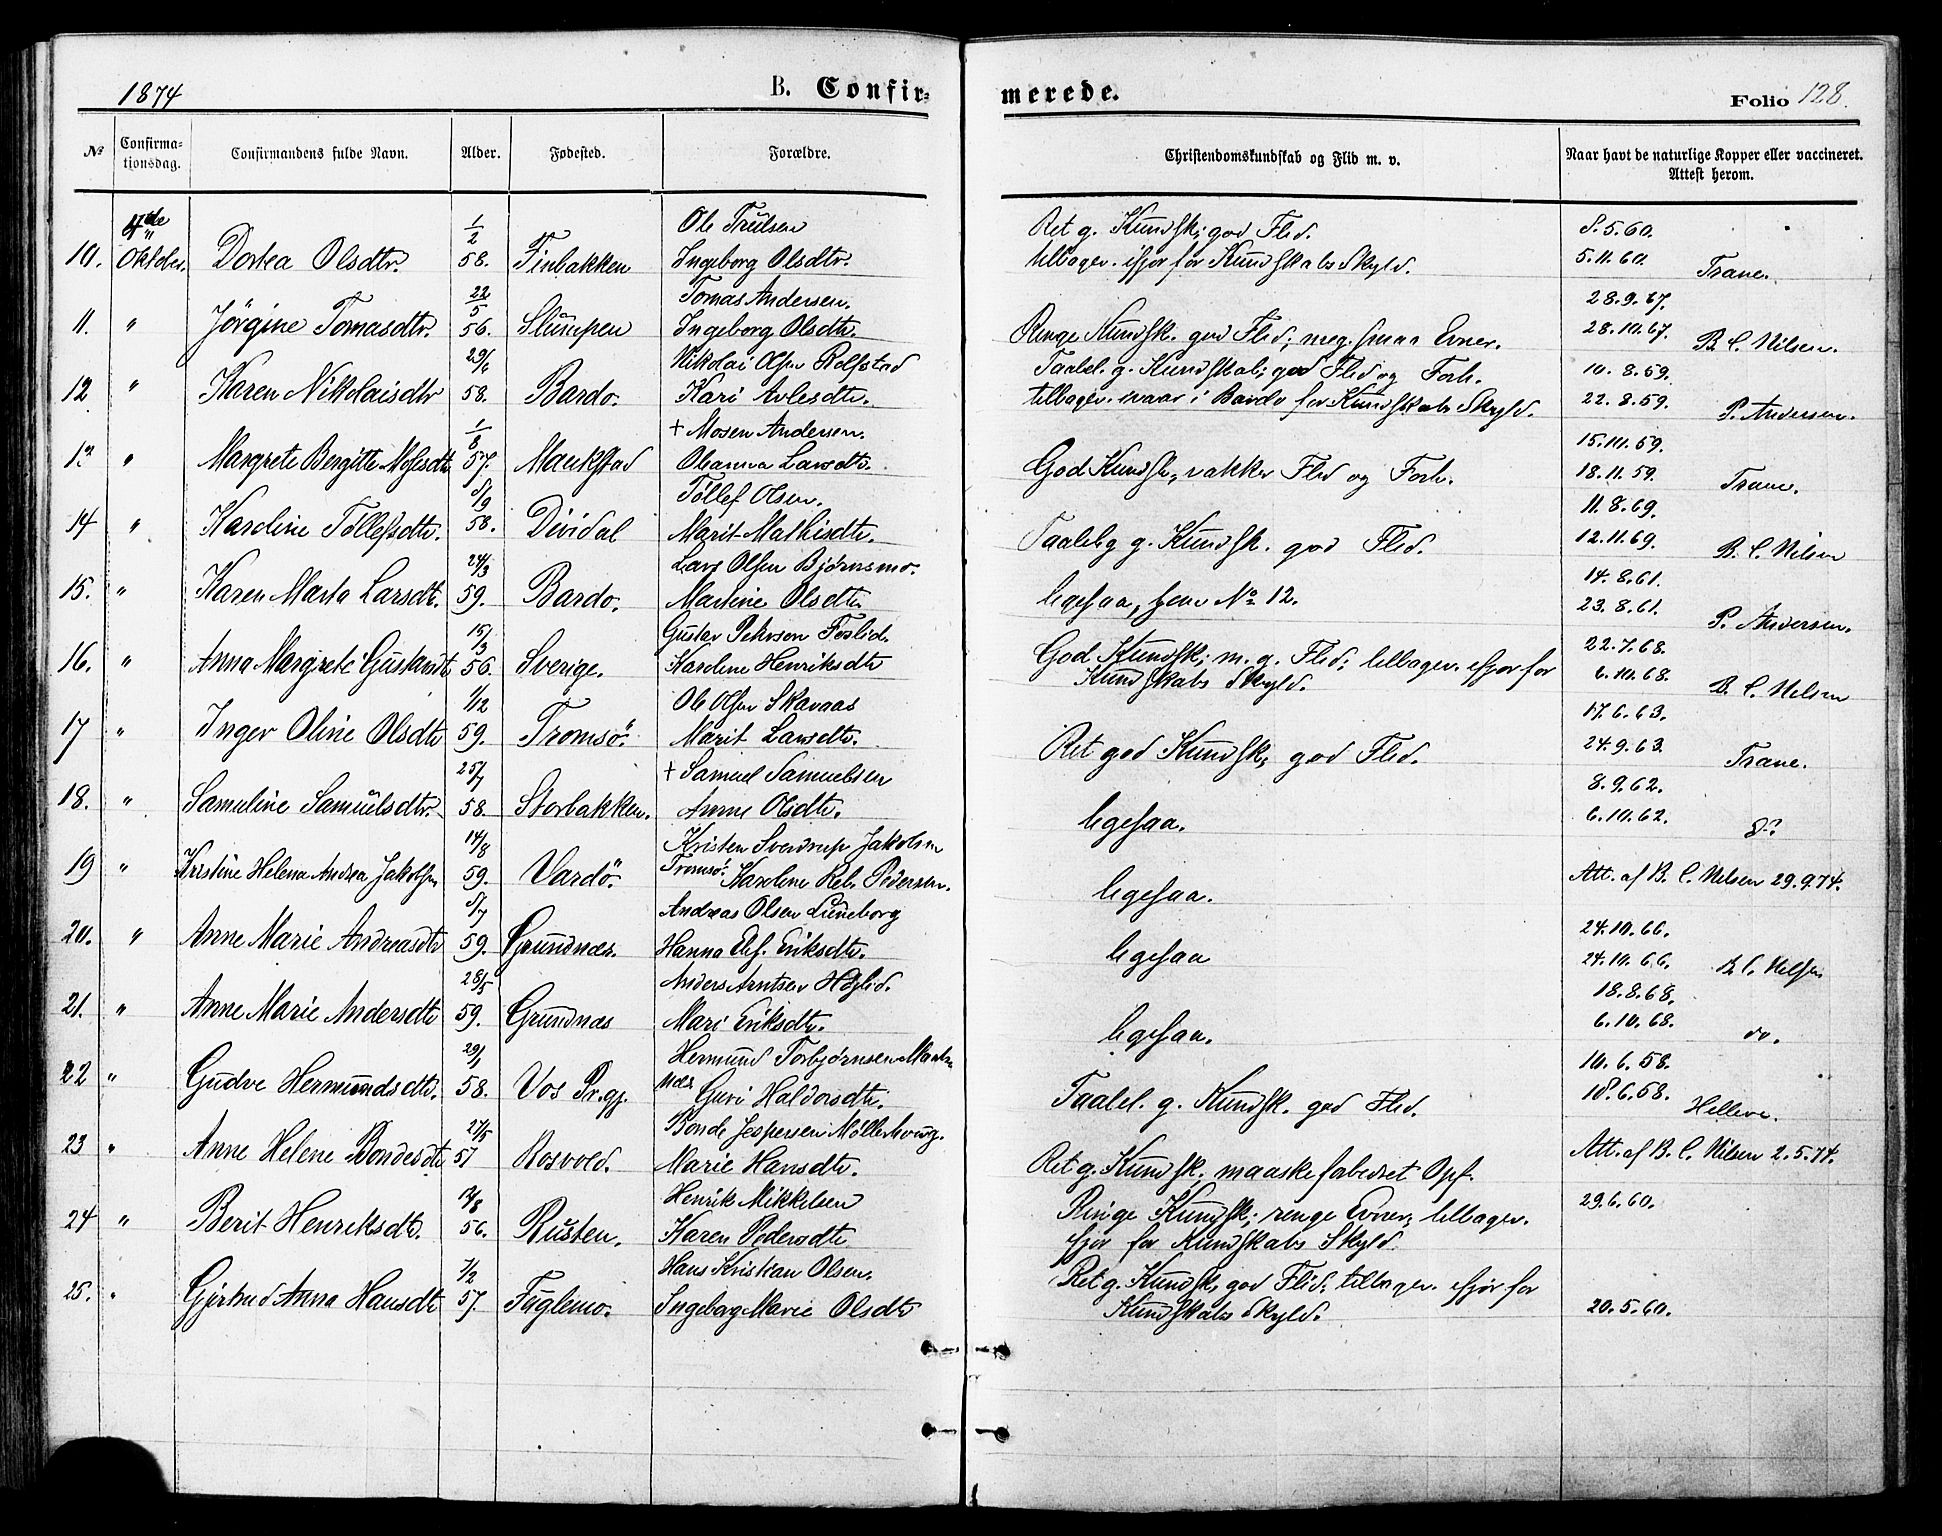 1874 B. Confirmerede. Folio 128.
№ Confirmationsdag. Confirmandens fulde Navn. Alder. Fødested. Forældre. Christendomskundskab og Flid m. v. Naar havt de naturlige Kopper eller vaccineret. Attest herom.
4de 1/2 Ole Trulsen Ret g. Kundsk; god Flid. 8.5.60.
10. Oktober. Dortea Olsdtr. 58. Finbakken Ingeborg Olsdtr. tilbagev. ifjor for Kundskabs Skyld. 5.11.60. Trane.
22/5 Tomas Andersen. 28.9.67.
11. " Jörgine Tomasdtr. 56. Slumpen Ingeborg Olsdtr. Ringe Kundsk. god Flid; meg. smaa Evner. 28.10.67. B. C. Nilsen.
29/6 Nikolai Olsen Rolfstad Taalel. g. Kundskab; god Flid og Forh. 10.8.59.
12 " Karen Nikolaisdtr 58. Bardo. Kari Avlesdtr. tilbagev. ivaar i Bardo for Kundskabs Skyld. 22.8.59. P. Andersen.
1/8 + Mosen Andersen. 15.10.59.
13 " Margrete Bergitte Mosesdtr 57. Maukstad Oleanna Larsdtr. God Kundsk., vakker Flid og Forh. 18.11.59. Trane.
8/9 Töllef Olsen. 11.8.69.
14 " Karoline Töllefsdtr. 58. Dividal Marit Mathisdtr. Taalelig g. Kundsk. god Flid. 12.11.69. B. C. Nilsen
24/3 Lars Olsen Björnsmo. 14.8.61.
15. " Karen Marta Larsdtr. 59. Bardo. Martine Olsdtr ligesaa, som No 12. 23.8.61. P. Andersen.
15/3 Gustav Petersen Foslid. God Kundsk; m. g. Flid; tilbagev. ifjor for 22.7.68.
16. " Anna Margrete Gustavdtr 56. Sverige. Karoline Henriksdtr Kundskabs Skyld. 6.10.68. B. C. Nilsen
1/12 Ole Olsen Skavaas 17.6.63.
17 " Inger Oline Olsdtr 59. Tromsö. Marit Larsdtr. Ret god Kundsk; god Flid. 24.9.63. Trane.
25/7 + Samuel Samuelsen 8.9.62.
18. " Samuline Samuelsdtr. 58. Storbakken. Anne Olsdtr. ligesaa. 6.10.62. do
14/8 Kristen Sverdrup Jakobsen
19 " Kristine Helena Andrea Jakobsen 59. Vardö. Tromsö. Karoline Reb. Pedersen. ligesaa. Att. af B. C. Nilsen 29.9.74.
8/7 Andreas Olsen Luneborg 24.10.66.
20. " Anne Marie Andreasdtr 59. Grundnæs. Hanna Elis. Eriksdtr. ligesaa 24.10.66. B. C. Nilsen
28/5 Anders Arntsen Höglid. 18.8.68.
21. " Anne Marie Andersdtr 59. Grundnæs Mari Eriksdtr. ligesaa. 6.10.68. do.
29/1 Hermund Torbjörnsen 10.6.58.
22 " Gudve Hermundsdtr. 58. Vos Pr.gj. næs Guri Haldorsdtr. Taalel. g. Kundsk. god Flid. 18.6.58. Helleve.
27/5 Bonde Jespersen Möllerhoug.
23 " Anne Helene Bondesdtr 57 Rosvold. Marie Hansdtr. Ret g. Kundsk; maaske forbedret Opf. Att. af B. C. Nilsen 2.5.74.
Henrik Mikkelsen Ringe Kundsk; ringe Evner; tilbagev. 29.6.60.
24 " Berit Henriksdtr. 56. Rusten. Karen Pedersdtr ifjor for Kundskabs Skyld.
7/2 Hans Kristian Olsen. Ret g. Kundsk, god Flid; tilbagev. ifjor for
25. " Gjertrud Anna Hansdtr 57. Fuglemo. Ingeborg Marie Olsdtr Kundskabs Skyld. 20.5.60.